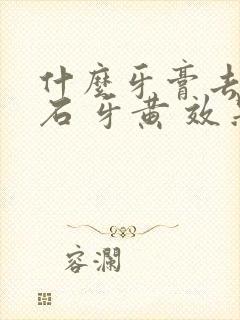 什麼牙膏去
石 牙黄 效
容瀾